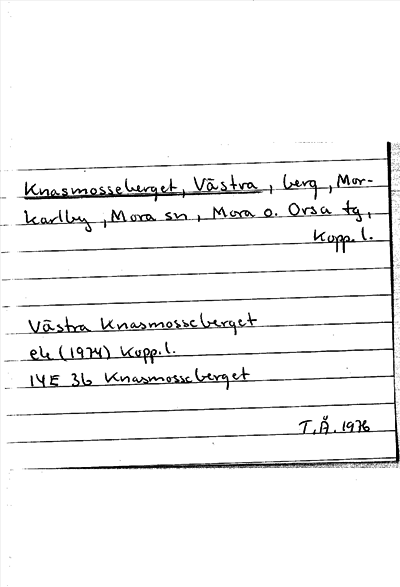 Knasmosseberget, Västra, berg, Mor-
karlby, Mora sn, Mora o. Orsa tg,
Kopp. l.
Västra Knasmosseberget
ek (1974) Kopp. l.
14E 3b Knasmosseberget
T.Å. 1976